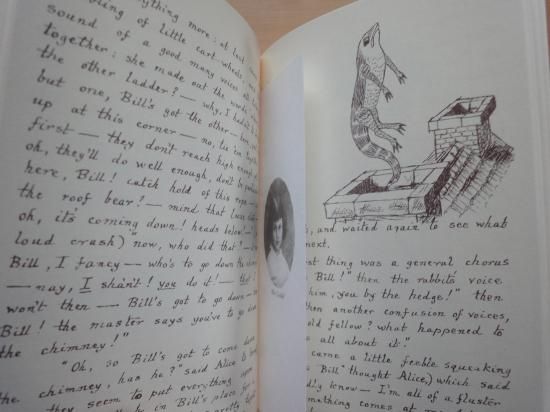 everything more: at last
rumbling of little cart-wheels,
sound of a good many voices all
together: she made out the words,
the other ladder? — why, I hadn't
but one, Bill's got the other —
up at this corner — no, tie 'em
first — they don't reach high enough
oh, they'll do well enough, don't be
here, Bill! catch hold of this rope —
the roof bear? — mind that loose
oh, it's coming down! heads below! —
loud crash) "now, who did that? —
Bill, I fancy — who's to go down the
— nay, I shan't! you do it! — that
won't then — Bill's got to go down —
Bill! the master says you've to go
the chimney!"
"Oh, so Bill's got to come down
the chimney, has he?" said Alice to
they seem to put everything upon
in Bill's place for
pretty
and waited again to see what
next.
thing was a general chorus
Bill!" then the rabbit's voice
him, you by the hedge!" then
then another confusion of voices,
old fellow? what happened to
all about it."
came a little feeble squeaking
Bill" thought Alice,) which said
know — I'm all of a fluster
something comes at me